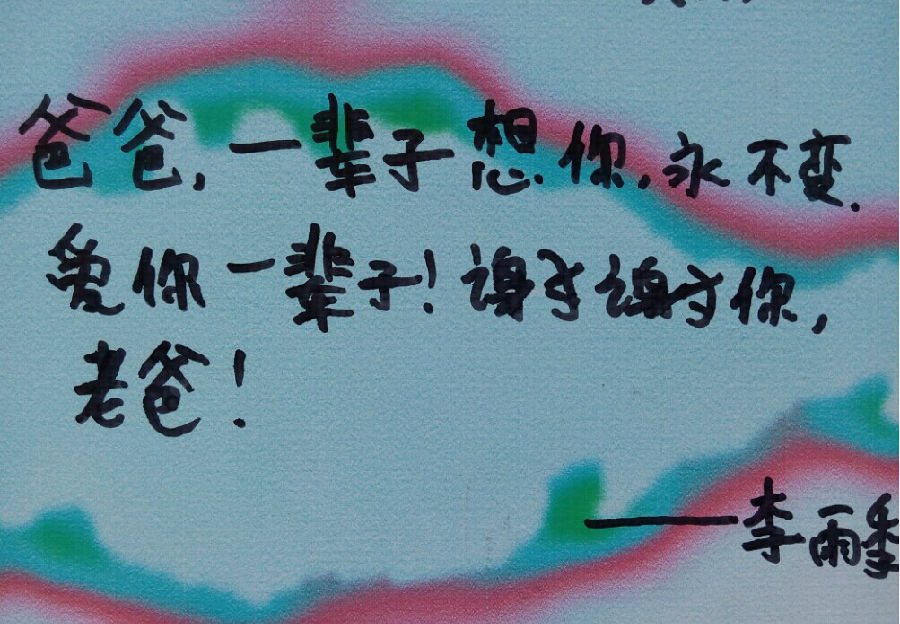 爸爸,一辈子想你,永不变.
爱你一辈子!谢谢你,
老爸!
——李雨季